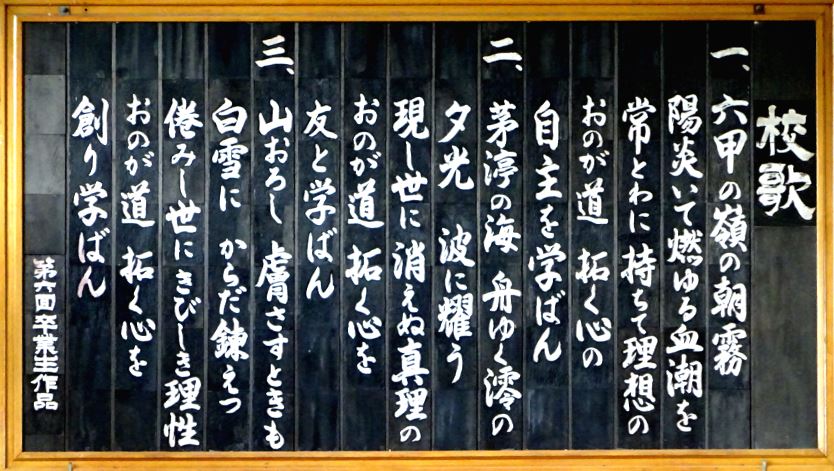 校歌
一、六甲の嶺の朝霧
陽炎いて燃ゆる血潮を
常とわに持ちて理想の
おのが道 拓く心の
自主を学ばん
二、茅渟の海 舟ゆく澪の
夕光 波に耀う
現し世に消えぬ真理の
おのが道 拓く心を
友と学ばん
三、山おろし 膚さすときも
白雪に からだ錬えつ
倦みし世にきびしき理性
おのが道 拓く心を
創り学ばん
第六回卒業生作品